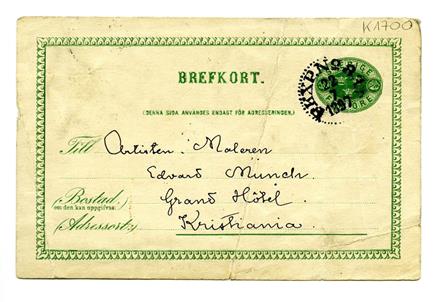 K1700
BREFKORT.
SVERIGE
(DENNA SIDA ANVÄNDES ENDAST FÖR ADRESSERINGEN.)
1897
ÖRE
Till Artisten. Maleren
Edvard Munch.
(Bostad) Grand Hôtel.
om den kan uppgifvas.
(Adressort:) Kristiania.